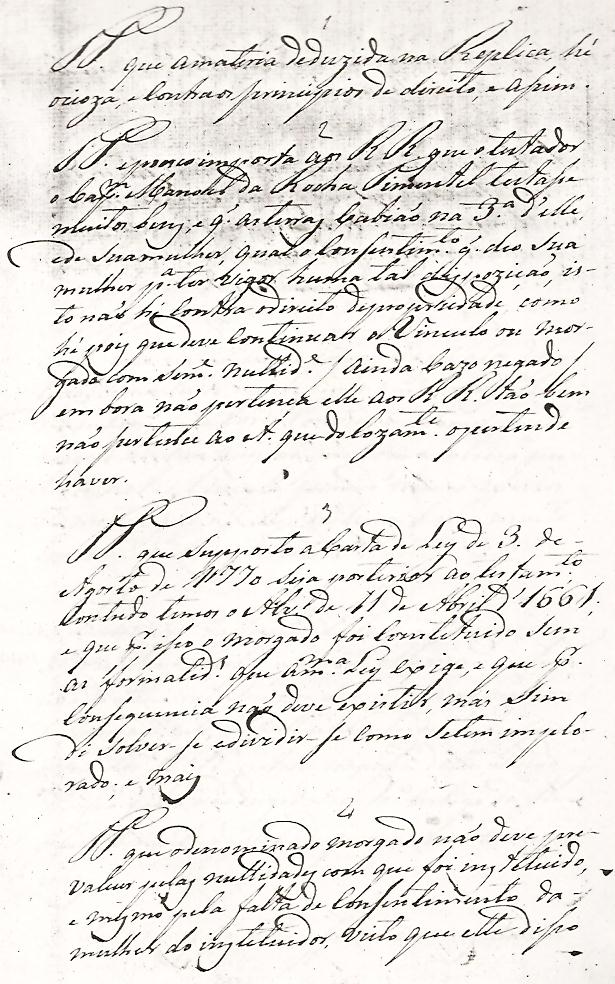 1
P. que a materia deduzida na Replica, hé
ocioza, e contra os principios de direito, e assim.
2
P. e pouco importa aos RR. que o testador
o Cap.m Manoel da Rocha Pimentel testasse
muito bem, e q. as terras cabião na 3.a d'elle,
e de sua mulher, qual o consentim.to q. deo sua
mulher p.a ter vigor huma tal dispozição, is-
to não hé contra o direito de propriedade, como
hé pois que deve continuar o Vinculo ou mor-
gado com sem.e nullid.e / Ainda cazo negado /
embora não pertença elle aos RR. tão bem
não pertence ao A. que dolozam.te o pertende
haver.
3
P. que supposto a Carta de Ley de 3. de-
Agosto de 1770 seja posterior ao testam.to
Contudo temos o Alv.e de 11 de Abril d'1661,
e que p. isso o morgado foi constituido sem
as formalid.s que a m.ma Ley exige, e que p.
consequencia não deve existir, mas sim
disolver-se e dividir-se como se tem implo-
rado; e mais
4
P. que o denominado morgado não deve pre-
valecer pelas nullidades com que foi instituido,
e mesmo pela falta de consentimento da-
mulher do instituidor, visto que elle dispo